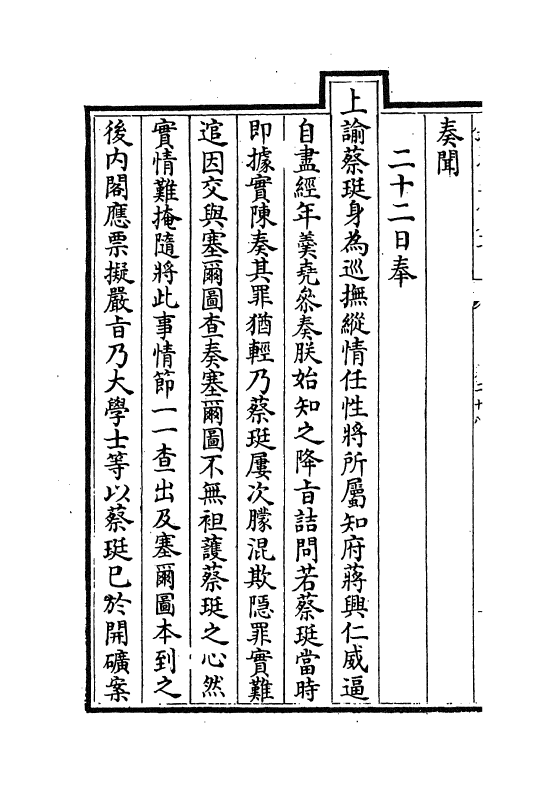 奏聞
二十二日奉
上諭蔡珽身為巡撫縱情任性將所屬知府蔣興仁威逼
自盡經年羹堯叅奏朕始知之降㫖詰問若蔡珽當時
即據實陳奏其罪猶輕乃蔡珽屢次朦混欺隱罪實難
逭因交與塞爾圖查奏塞爾圖不無袒護蔡珽之心然
實情難掩隨將此事情節一一查出及塞爾圖本到之
後内閣應票擬嚴㫖乃大學士等以蔡珽已於開礦案